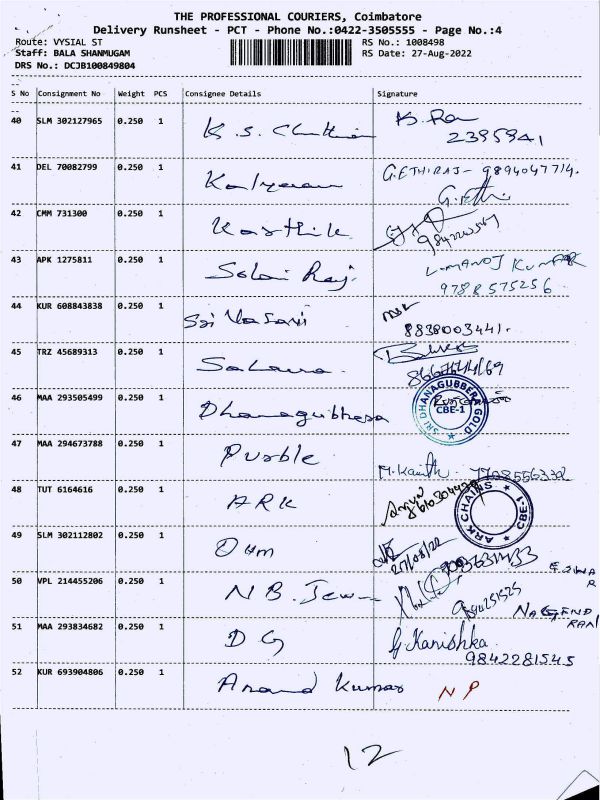 THE PROFESSIONAL COURIERS, Coimbatore
Delivery Runsheet - PCT - Phone No.:0422-3505555 - Page No.:4
Route: VYSIAL ST RS No.: 1008498
Staff: BALA SHANMUGAM RS Date: 27-Aug-2022
DRS No.: DCJB100849804
S No Consignment No Weight PCS Consignee Details Signature
40 SLM 302127965 0.250 1 K. S.
2395941
41 DEL 70082799 0.250 1 Kalyanam G.ETHIRAJ - 9894047714.
G.Ethi
42 CMM 731300 0.250 1 Karthik
43 APK 1275811 0.250 1 Solai Raj. L.MANOJ KUMAR
9788575256
44 KUR 608843838 0.250 1 Sri Vasavi
8838003441.
45 TRZ 45689313 0.250 1 Sahana
46 MAA 293505499 0.250 1 SRI DHANAGUBBERA GOLD
CBE-1
47 MAA 294673788 0.250 1 Purble
7708556332
48 TUT 6164616 0.250 1 ARK ARK CHAINS
CBE-1
49 SLM 302112802 0.250 1 Oum
27/08/22
50 VPL 214455206 0.250 1 N B. Jew
51 MAA 293834682 0.250 1 D G G. Kanishka
9842281545
52 KUR 693904806 0.250 1 Anand Kumar N P
12